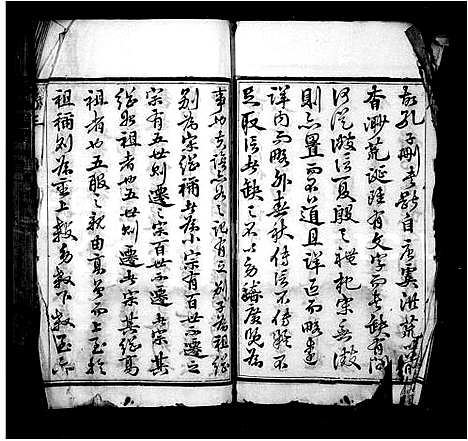 故孔子刪書斷自唐虞洪荒
杳渺荒誕雖有文字而書缺有間
何從徵信夏殷之禮杞宋無徵
則亦置而不道且詳近而略遠
詳內而略外春秋傳信不傳疑不
足取信者缺之不
事也古語之記有之別子為祖繼
別為宗繼禰者為小宗有百世不遷之
宗有五世則遷之宗百世不遷者宗其
繼別祖者也五世則遷者宗其繼高
祖者也五服之親由高曾而上至於
祖禰別為上殺旁殺下殺至